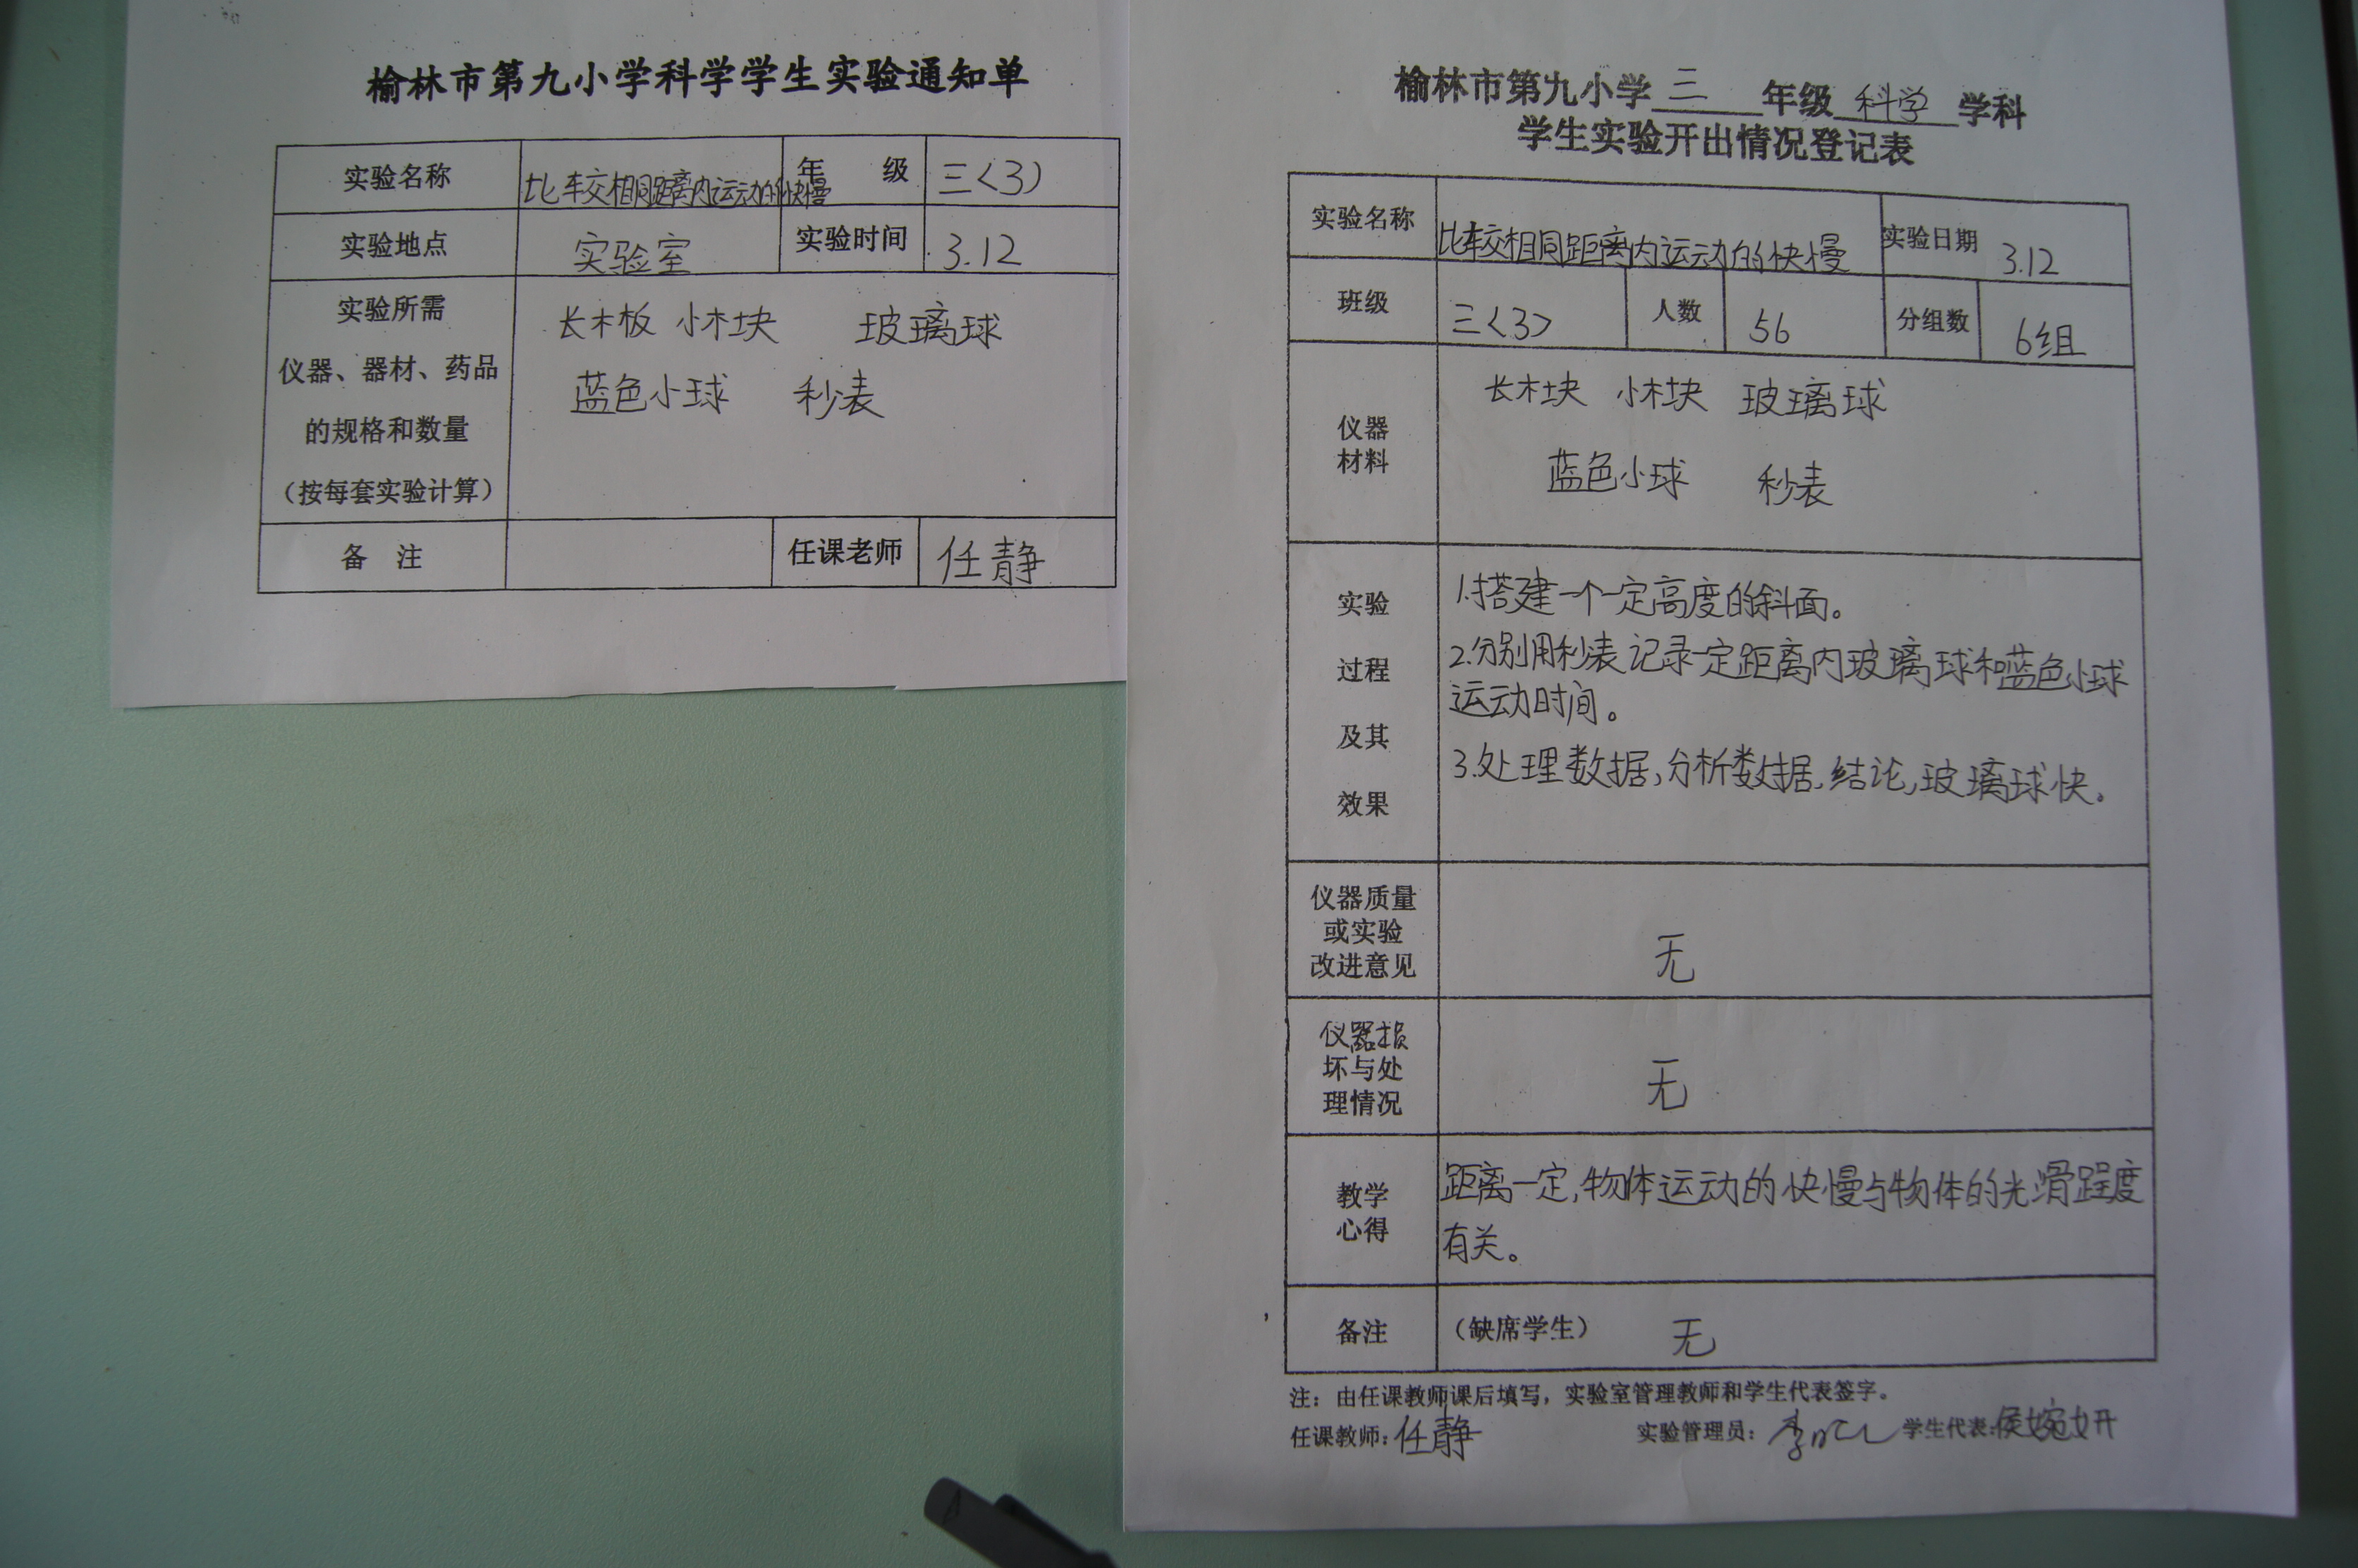 榆林市第九小学科学学生实验通知单
实验名称 比较相同距离内运动的快慢 年级 三(3)
实验地点 实验室 实验时间 3.12
实验所需
仪器、器材、药品
的规格和数量
（按每套实验计算）
长木板 小木块 玻璃球
蓝色小球 秒表
备注 任课老师 任静
榆林市第九小学 三 年级 科学 学科
学生实验开出情况登记表
实验名称 比较相同距离内运动的快慢 实验日期 3.12
班级 三(3) 人数 56 分组数 6组
仪器
材料
长木块 小木块 玻璃球
蓝色小球 秒表
实验
过程
及其
效果
1.搭建一个一定高度的斜面。
2.分别用秒表记录一定距离内玻璃球和蓝色小球
运动时间。
3.处理数据,分析数据,结论,玻璃球快。
仪器质量
或实验
改进意见
无
仪器损
坏与处
理情况
无
教学
心得
距离一定,物体运动的快慢与物体的光滑程度
有关。
备注 （缺席学生） 无
注：由任课教师课后填写，实验室管理教师和学生代表签字。
任课教师:任静 实验管理员: 学生代表:侯婉妍